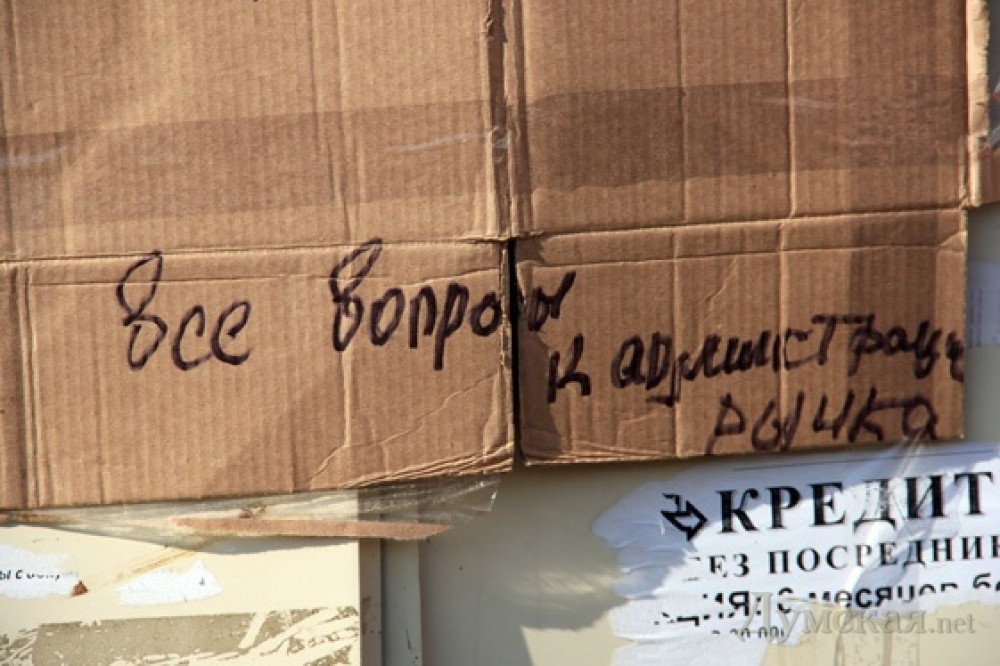 Все вопросы
к администраци
рынка
КРЕДИТ
БЕЗ ПОСРЕДНИК
ЦИЯ: 6 месяцев бе
Думская.net